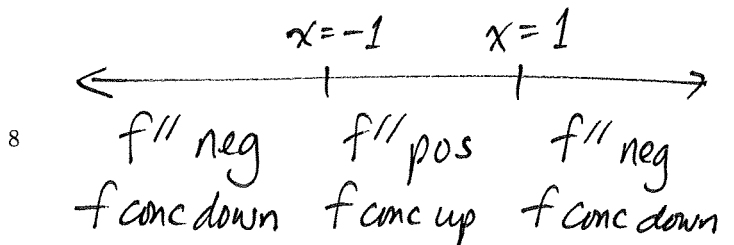 x=-1 x=1
8 f″ neg f″ pos f″ neg
f conc down f conc up f conc down